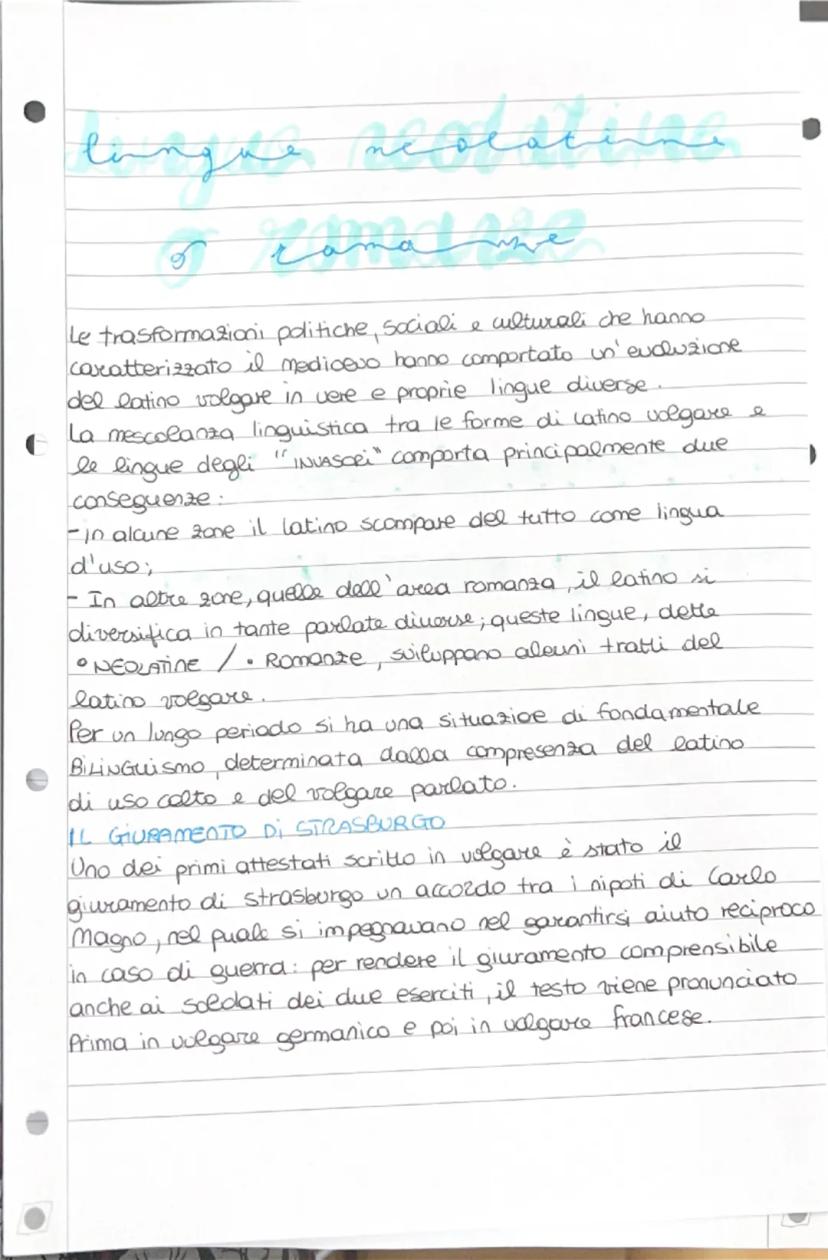 lingue neolatine
o romanze
Le trasformazioni politiche, sociali e culturali che hanno
caratterizzato il medioevo hanno comportato un'evoluzione
del latino volgare in vere e proprie lingue diverse.
La mescolanza linguistica tra le forme di latino volgare e
le lingue degli "INVASORI" comporta principalmente due
conseguenze:
-in alcune zone il latino scompare del tutto come lingua
d'uso;
- In altre zone, quelle dell'area romanza, il latino si
diversifica in tante parlate diverse; queste lingue, dette
• NEOLATINE / • Romanze, sviluppano alcuni tratti del
latino volgare.
Per un lungo periodo si ha una situazioe di fondamentale
BILINGUISMO, determinata dalla compresenza del latino
di uso colto e del volgare parlato.
IL GIURAMENTO DI STRASBURGO
Uno dei primi attestati scritto in volgare è stato il
giuramento di strasburgo un accordo tra i nipoti di Carlo
Magno, nel quale si impegnavano nel garantirsi aiuto reciproco
in caso di guerra: per rendere il giuramento comprensibile
anche ai soldati dei due eserciti, il testo viene pronunciato
Prima in volgare germanico e poi in volgare francese.